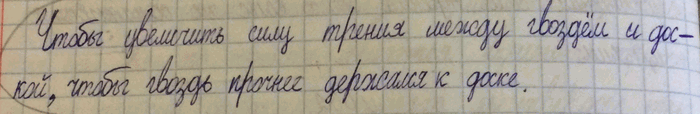 Чтобы увеличить силу трения между гвоздём и дос-
кой, чтобы гвоздь прочнее держался к доске.